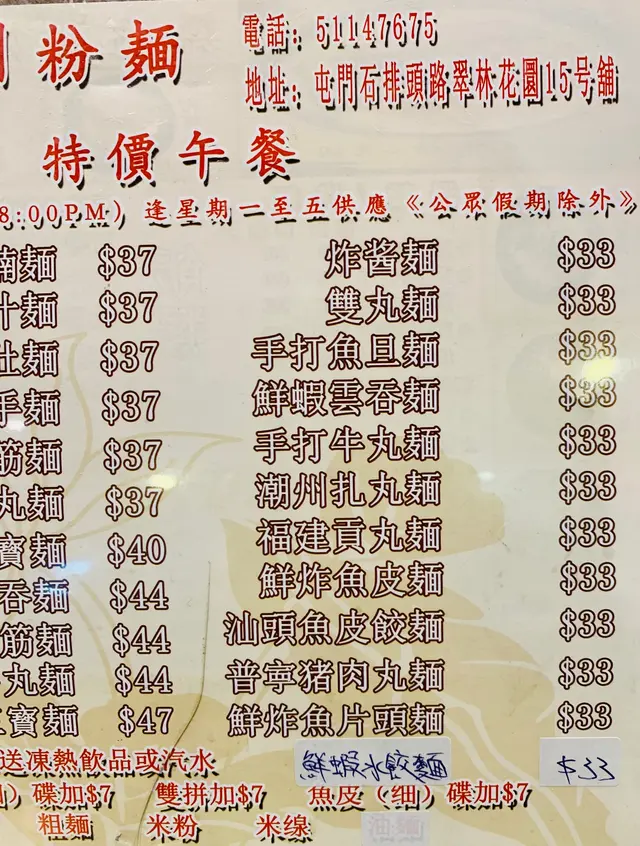 粉麵
電話：51147675
地址：屯門石排頭路翠林花園15号舖
特價午餐
8:00PM) 逢星期一至五供應《公眾假期除外》
麵 $37 炸酱麵 $33
汁麵 $37 雙丸麵 $33
肚麵 $37 手打魚旦麵 $33
手麵 $37 鮮蝦雲吞麵 $33
筋麵 $37 手打牛丸麵 $33
丸麵 $37 潮州扎丸麵 $33
寶麵 $40 福建貢丸麵 $33
吞麵 $44 鮮炸魚皮麵 $33
筋麵 $44 汕頭魚皮餃麵 $33
丸麵 $44 普寧猪肉丸麵 $33
寶麵 $47 鮮炸魚片頭麵 $33
送凍熱飲品或汽水 鮮蝦水餃麵 $33
) 碟加$7 雙拼加$7 魚皮（细）碟加$7
粗麵 米粉 米缐 油麵